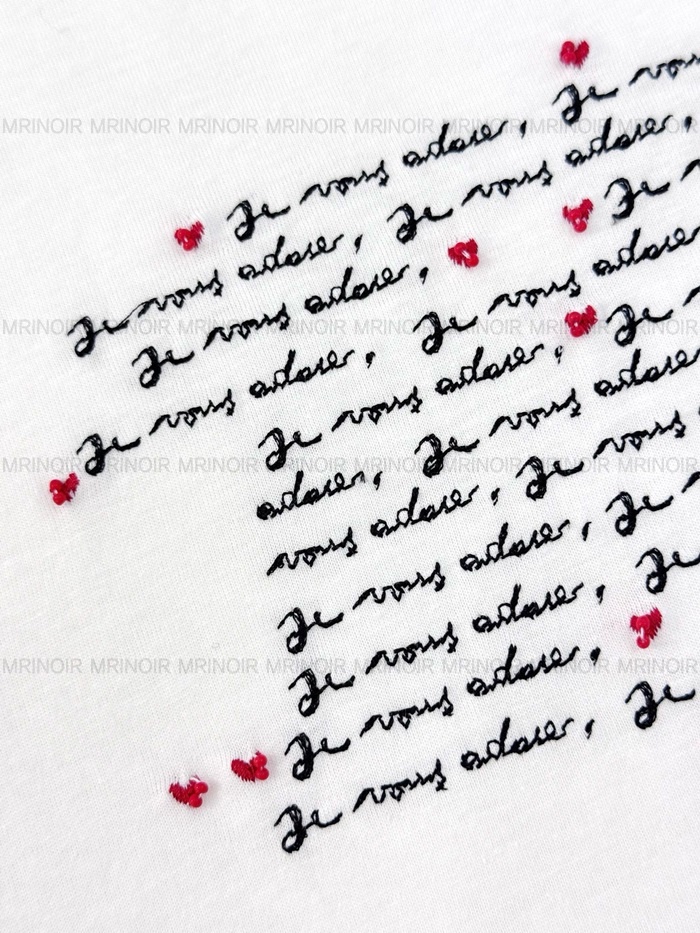 Je vous adore, Je vous
Je vous adore, Je vous adore,
Je vous adore, Je
Je vous adore, Je vous adore
Je vous adore, Je
adore, Je vous adore
vous adore, Je vous
Je vous adore, Je
Je vous adore, Je
Je vous adore,
Je vous adore, Je
MRINOIR MRINOIR MRINOIR MRINOIR MRINOIR MRINOIR MRINOIR MRINOIR
MRINOIR MRINOIR MRINOIR MRINOIR MRINOIR MRINOIR MRINOIR MRINOIR
MRINOIR MRINOIR MRINOIR MRINOIR MRINOIR MRINOIR MRINOIR MRINOIR
MRINOIR MRINOIR MRINOIR MRINOIR MRINOIR MRINOIR MRINOIR MRINOIR